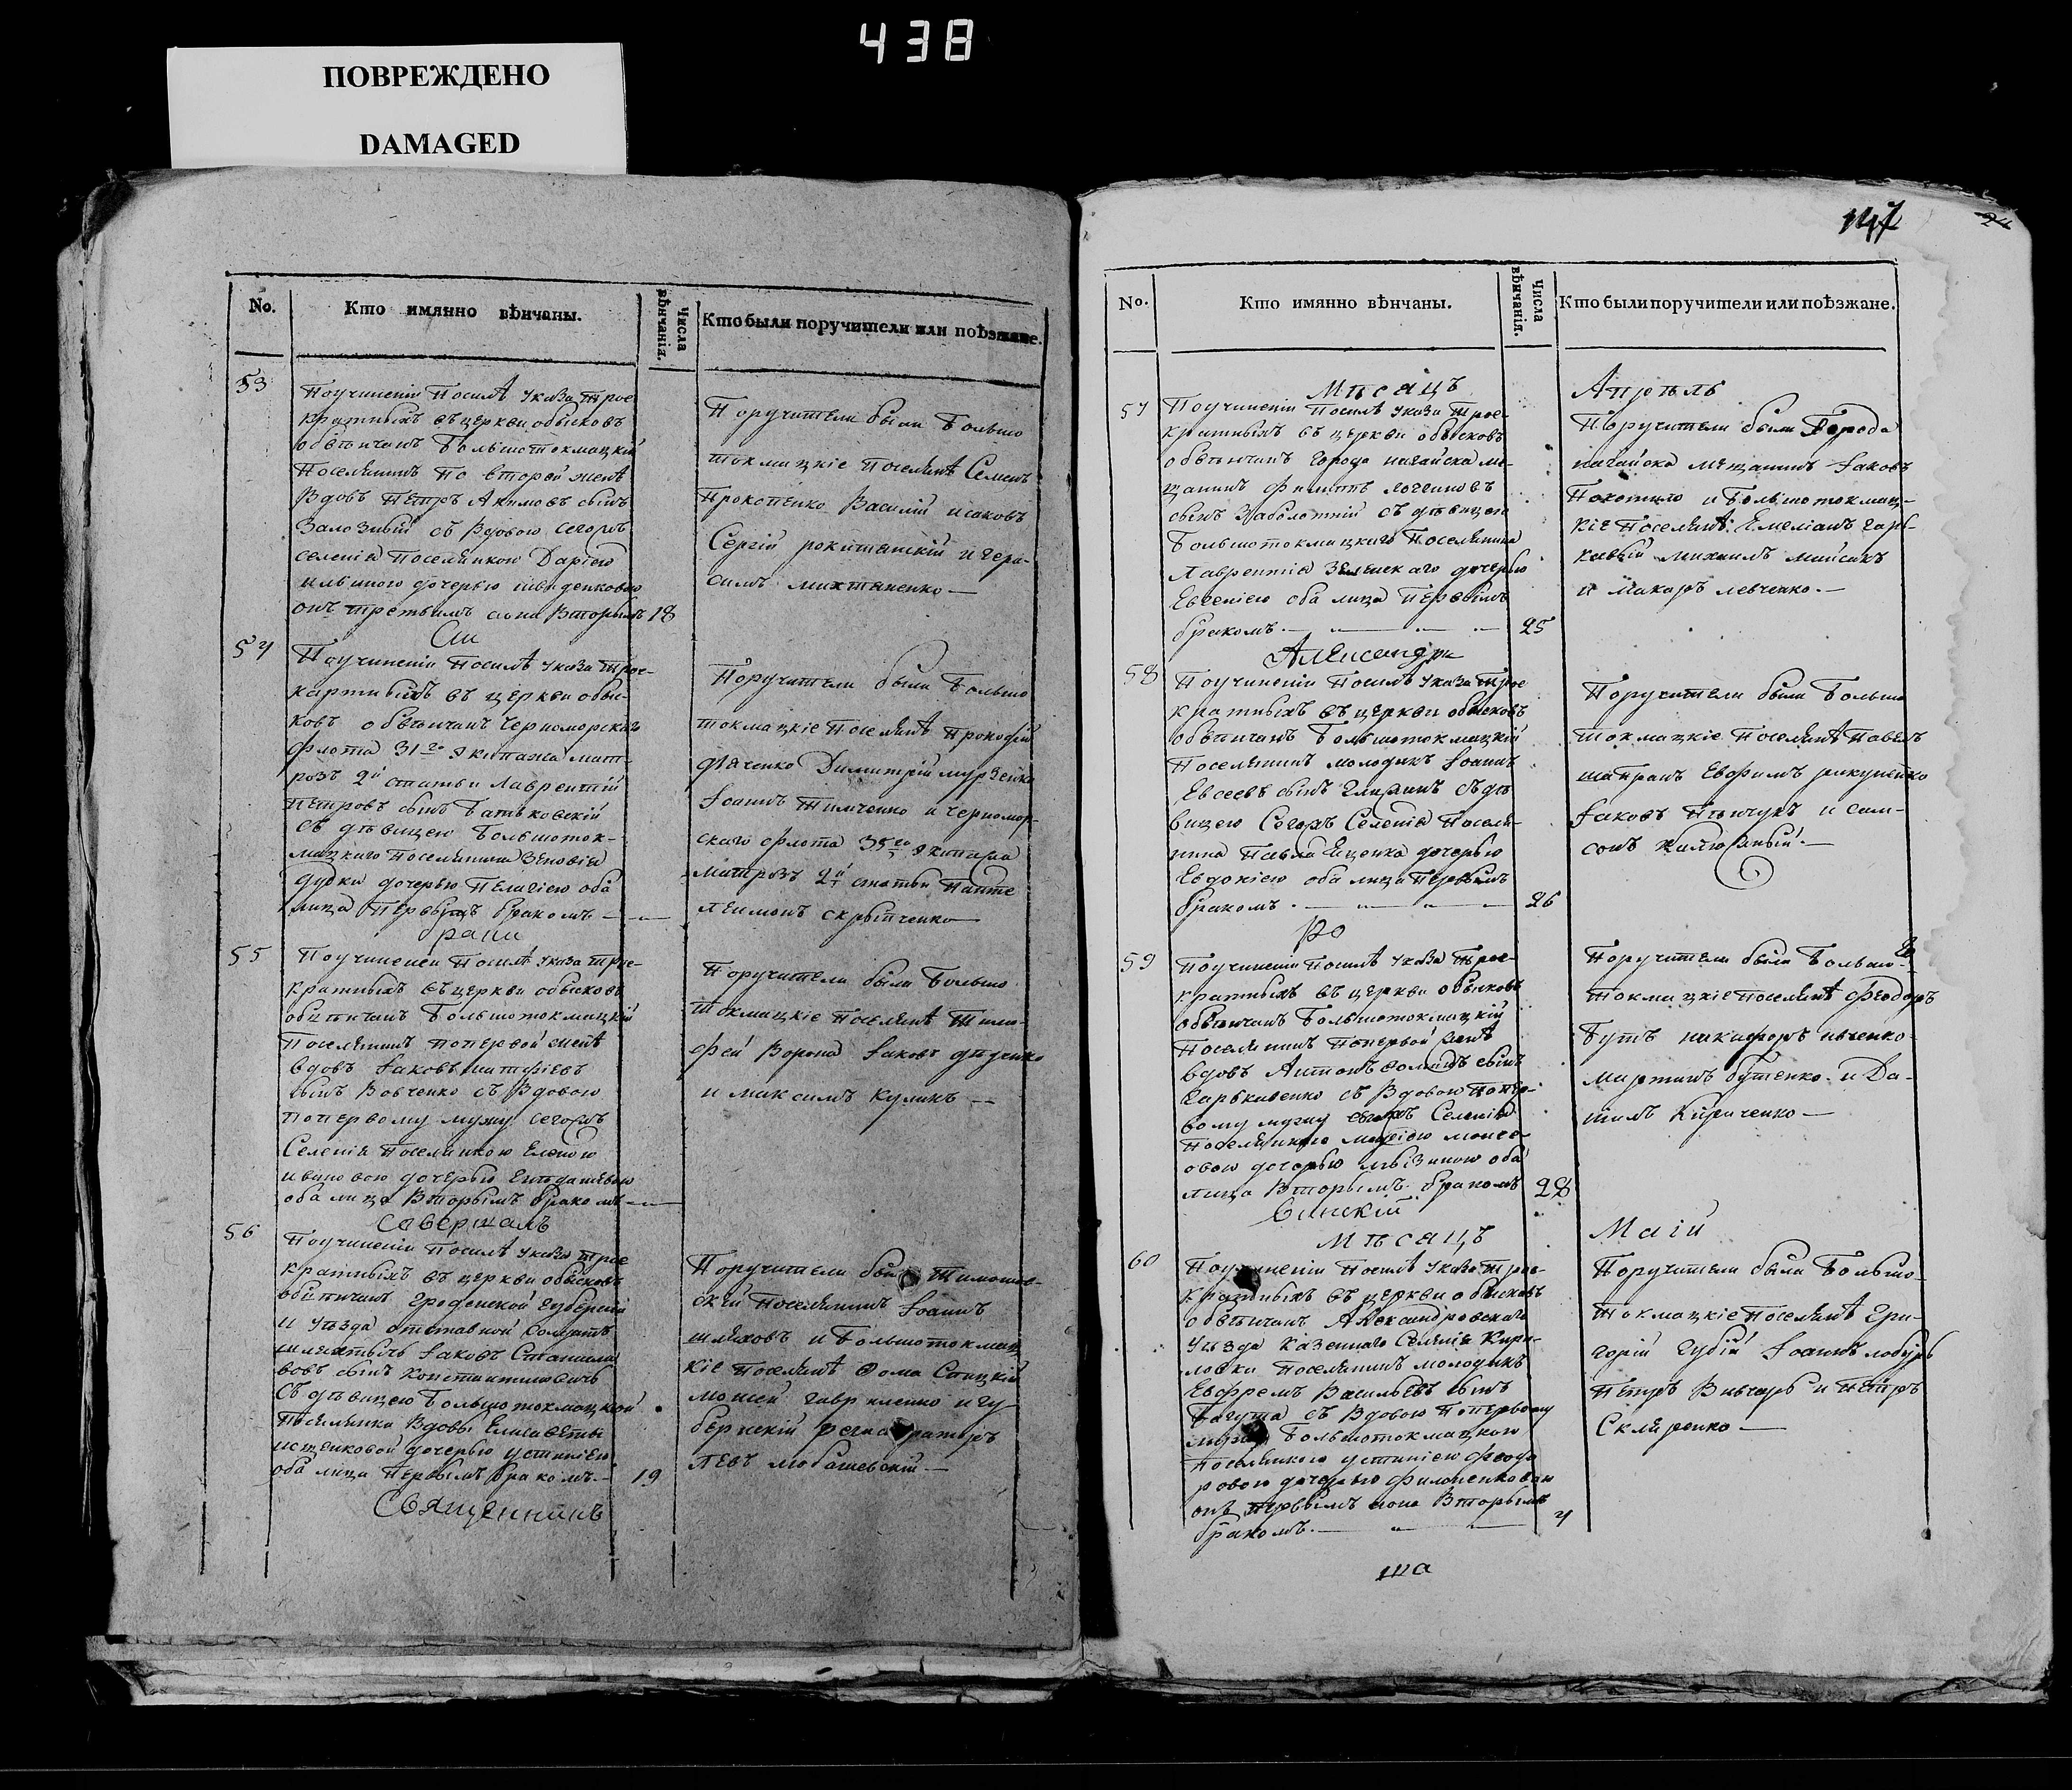 438
ПОВРЕЖДЕНО
DAMAGED
No.
Кто имянно вѣнчаны.
Числа вѣнчанія.
Кто были поручители или поѣзжане.
53
Поучиненіи Посилѣ указа трое
кратныхъ въ церкви обысковъ
обвѣнчанъ Большотокмацкій
Поселянинъ по второй женѣ
Вдовъ Петръ Акимовъ сынъ
Залозный съ Вдовою сегожъ
селенія Поселянкою Даріею
дочерью
онъ третьимъ она Вторымъ 18
Поручители были Большо
токмацкіе поселянѣ Семенъ
Прокопенко Василій исаковъ
Сергій и Гера-
симъ
Си
54
Поучиненіи Посилѣ указа трое-
картныхъ въ церкви обыс-
ковъ обвѣнчанъ Черноморскаго
флота 31го Экипажа мат-
розъ 2й статьи Лаврентій
Петровъ сынъ Батьковскій
съ дѣвицею Большоток-
мацкаго Поселянина Зѣновія
дудки дочерью Пелагіею оба
лица Первымъ бракомъ
Поручители были Большо
токмацкіе Поселянѣ Прокофій
Дяченко Димитрій мурзенко
Іоаннъ Тимченко и Черномор-
скаго флота 35го экипажа
Матрозъ 2й статьи Панте
леимонъ скрыпченко
брани
55
Поучиненіи Посилѣ указа трое-
кратныхъ въ церкви обысковъ
обвѣнчанъ Большотокмацкій
Поселянинъ Попервой женѣ
вдовъ Іаковъ матфіевъ
сынъ Вовченко съ Вдовою
попервому мужу сегожъ
Селенія Поселянкою Еленою
дочерью
оба лица Вторымъ бракомъ
Поручители были Большо
токмацкіе Поселянѣ Тимо-
фей Ворона Іаковъ
и максимъ куликъ
совершалъ
56
Поучиненіи Посилѣ указа трое
кратныхъ въ церкви обысковъ
обвѣнчанъ Гроденской Губерніи
и уѣзда отставной Солдатъ
шляхтычь Іаковъ Станисла
вовъ сынъ
съ дѣвицею Большотокмацкой
Поселянки Вдовы Елисаветы
дочерью устиніею
оба лица первымъ бракомъ 19
Поручители были Тимошев-
скій Поселянинъ Іоаннъ
шляховъ и Большотокмац
кіе поселянѣ Ѳома Стицкій
моисей гавриленко и гу
бернскій регистраторъ
Левъ
Священникъ
147
24
No.
Кто имянно вѣнчаны.
Числа вѣнчанія.
Кто были поручители или поѣзжане.
Мѣсяцъ
Апрѣль
57
Поучиненіи Посилѣ указа трое-
кратныхъ въ церкви обысковъ
обвѣнчанъ города нагайска ме-
щанинъ филиппъ логгиновъ
сынъ Заболотній съ дѣвицею
Большотокмацкаго Поселянина
Лаврентія Зеленскаго дочерью
Евгеніею оба лица Первымъ
бракомъ 25
Поручители были Города
нагайска мещанинъ Іаковъ
Покотило и Большотокмац-
кіе Поселянѣ: Емеліанъ гарь-
кавый михаилъ мойсикъ
и макаръ левченко.
Александръ
58
Поучиненіи Посилѣ указа трое
кратныхъ въ церкви обысковъ
обвѣнчанъ Большотокмацкій
Поселянинъ молодикъ Іоаннъ
Евсеевъ сынъ съ дѣ
вицею Сегожъ Селенія Поселя-
нина Павла Яценка дочерью
Евдокіею оба лица Первымъ
бракомъ 26
Поручители были Большо
токмацкіе Поселянѣ Павелъ
шапранъ Евфимъ
Іаковъ и сам-
сонъ калюжный
ро
59
Поучиненіи Посилѣ указа трое-
кратныхъ въ церкви обысковъ
обвѣнчанъ Большотокмацкій
Поселянинъ Попервой женѣ
вдовъ Антонъ сынъ
Гарькавенко съ Вдовою Попер-
вому мужу сегожъ Селенія
Поселянкою
овою дочерью оба
лица Вторымъ бракомъ 28
Поручители были Большо-
токмацкіе поселянѣ Феодоръ
Бутъ никифоръ ивченко
мартинъ бутенко и Да-
ніилъ Кириченко
Синскій
Мѣсяцъ
Маій
60
Поучиненіи Посилѣ указа трое-
кратныхъ въ церкви обысковъ
обвѣнчанъ Александровскаго
Уѣзда Казеннаго Селенія Кири-
ловки поселянинъ молодикъ
Евфремъ Васильевъ сынъ
Багута съ Вдовою Попервому
мужу Большотокмацкою
Поселянкою устиніею Феодо
ровою дочерью филоненковою
онъ первымъ иона Вторымъ
бракомъ. 4
Поручители были Большо-
токмацкіе Поселянѣ Гри-
горій Губій Іоаннъ лобурь
Петръ Вивчарь и Петръ
Скляренко
ша